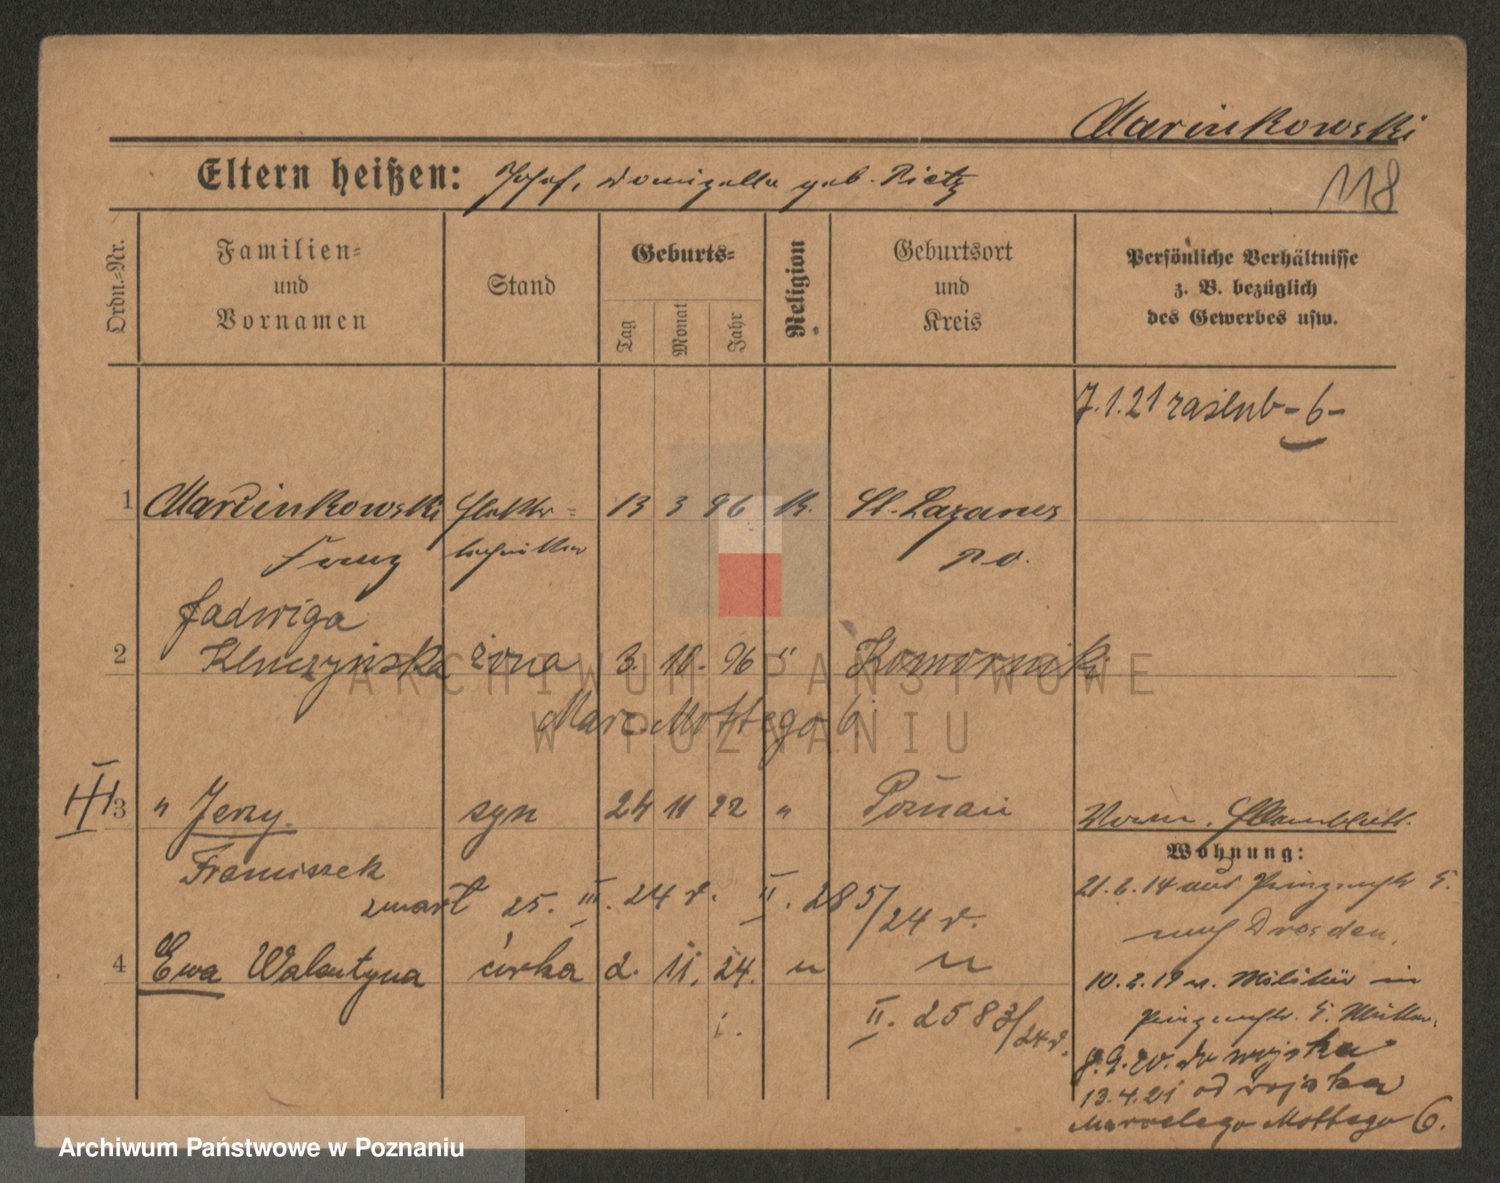 Marcinkowski
118
Eltern heißen: Josef, Domizella geb. Pietz
Ordn.=Nr.
Familien= und Vornamen
Stand
Geburts=
Tag
Monat
Jahr
Religion
Geburtsort und Kreis
Persönliche Verhältnisse
z. B. bezüglich
des Gewerbes usw.
7.1.21 zaślub - 6 -
1 Marcinkowski Elektr= 13 3 96 K. St. Lazarus
Franz techniker Po.
Jadwiga
2 żona 3. 10. 96 " Komorniki
Marc. Mottego 6
III
3 " Jerzy syn 24 11 22 " Poznań
Franciszek
zmarł 25. III. 24 r. II. 285/24 r.
4 Ewa Walentyna córka 2. 11. 24. " "
II. 2583/24 r.
Vorm.
Wohnung:
21.6.14 aus 5.
nach Dresden.
10.2.19 v. Militär in
5.
8.9.20. do wojska
13.4.21 od wojska
Marcelego Mottego 6.
ARCHIWUM PAŃSTWOWE
W POZNANIU
Archiwum Państwowe w Poznaniu